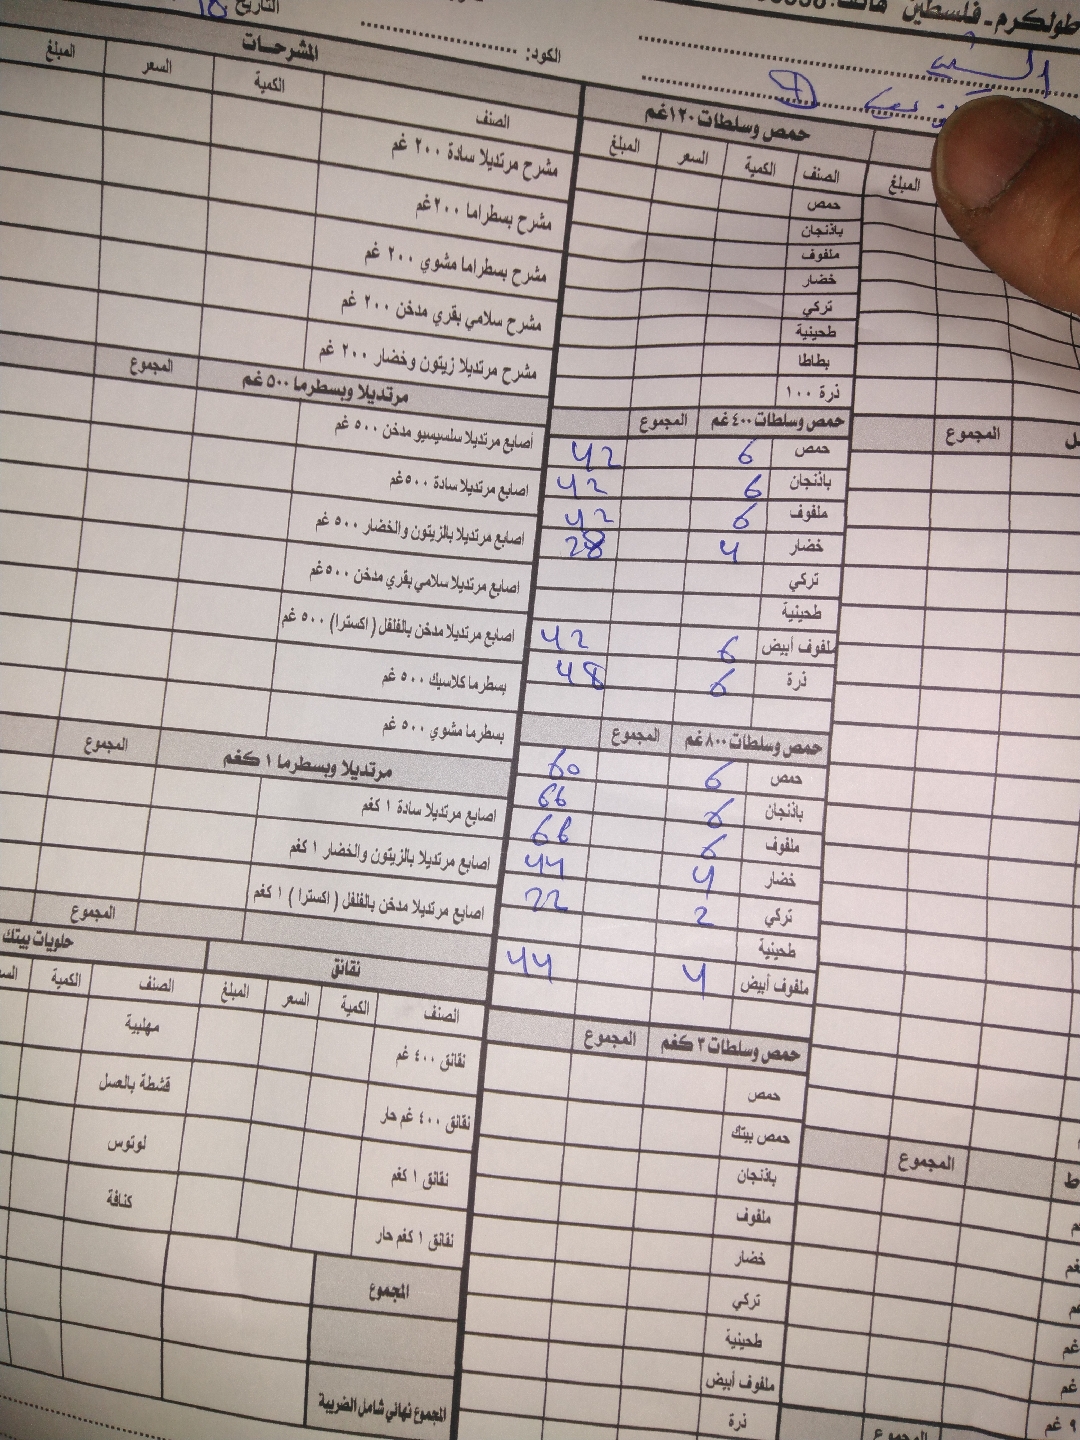 طولكرم - فلسطين هاتف:
التاريخ
الكود:
المبلغ
حمص وسلطات ١٢٠غم
الصنف الكمية السعر المبلغ
حمص
باذنجان
ملفوف
خضار
تركي
طحينية
بطاطا
ذرة ١٠٠
حمص وسلطات ٤٠٠ غم المجموع
حمص 6 42
باذنجان 6 42
ملفوف 6 42
خضار 4 28
تركي
طحينية
ملفوف أبيض 6 42
ذرة 6 48
حمص وسلطات ٨٠٠ غم المجموع
حمص 6 60
باذنجان 6 66
ملفوف 6 66
خضار 4 44
تركي 2 22
طحينية
ملفوف أبيض 4 44
حمص وسلطات ٣ كغم المجموع
حمص
حمص بيتك
باذنجان
ملفوف
خضار
تركي
طحينية
ملفوف أبيض
ذرة
المشرحات
الصنف الكمية السعر المبلغ
مشرح مرتديلا سادة ٢٠٠ غم
مشرح بسطراما ٢٠٠غم
مشرح بسطراما مشوي ٢٠٠ غم
مشرح سلامي بقري مدخن ٢٠٠ غم
مشرح مرتديلا زيتون وخضار ٢٠٠ غم
مرتديلا وبسطرما ٥٠٠ غم المجموع
اصابع مرتديلا سلسيسيو مدخن ٥٠٠ غم
اصابع مرتديلا سادة ٥٠٠غم
اصابع مرتديلا بالزيتون والخضار ٥٠٠ غم
اصابع مرتديلا سلامي بقري مدخن ٥٠٠غم
اصابع مرتديلا مدخن بالفلفل ( اكسترا) ٥٠٠ غم
بسطرما كلاسيك ٥٠٠ غم
بسطرما مشوي ٥٠٠ غم
مرتديلا وبسطرما ١ كغم المجموع
اصابع مرتديلا سادة ١ كغم
اصابع مرتديلا بالزيتون والخضار ١ كغم
اصابع مرتديلا مدخن بالفلفل ( اكسترا ) ١ كغم
المجموع
نقانق
الصنف الكمية السعر المبلغ
نقانق ٤٠٠ غم
نقانق ٤٠٠ غم حار
نقانق ١ كغم
نقانق ١ كغم حار
المجموع
المجموع نهائي شامل الضريبة
حلويات بيتك
الصنف الكمية
مهلبية
قشطة بالعسل
لوتوس
كنافة
المجموع
المجموع
المجموع